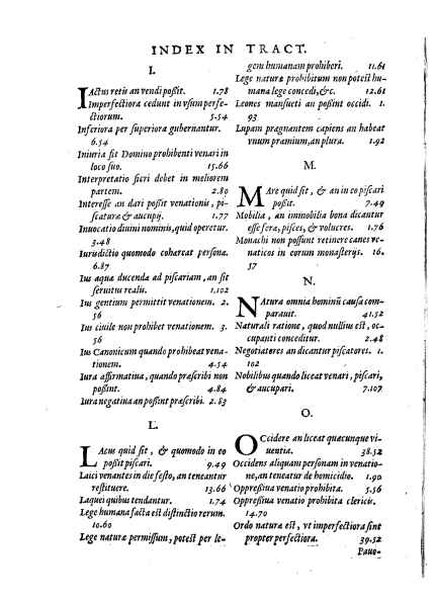 INDEX IN TRACT.
I.
IActus retis an vendi possit. 1.78
Imperfectiora cedunt in vsum perfe-
ctiorum. 5.54
Inferiora per superiora gubernantur.
6.54
Iniuria fit Domino prohibenti venari in
loco suo. 15.66
Interpretatio fieri debet in meliorem
partem. 2.80
Interesse an dari possit venationis, pi-
scaturæ & aucupij. 1.77
Inuocatio diuini nominis, quid operetur.
3.48
Iurisdictio quomodo cohæreat personæ.
6.87
Ius aquæ ducendæ ad piscariam, an sit
seruitus realis. 1.102
Ius gentium permittit venationem. 2.
56
Ius ciuile non prohibet venationem. 3.
56
Ius Canonicum quando prohibeat vena-
tionem. 4.54
Iura affirmatiua, quando præscribi non
possint. 4.84
Iura negatiua an possint præscribi. 2.83
L.
LAcus quid sit, & quomodo in eo
possit piscari. 9.49
Laici venantes in die festo, an teneantur
restituere. 13.66
Laquei quibus tendantur. 1.74
Lege humana facta est distinctio rerum.
10.60
Lege naturæ permissum, potest per le-
gem humanam prohiberi. 11.61
Lege naturæ prohibitum non potest hu-
mana lege concedi, &c. 12.61
Leones mansueti an possint occidi. 1.
93
Lupam prægnantem capiens an habeat
vnum præmium, an plura. 1.92
M.
MAre quid sit, & an in eo piscari
possit. 7.49
Mobilia, an immobilia bona dicantur
esse feræ, pisces, & volucres. 1.76
Monachi non possunt retinere canes ve-
naticos in eorum monasterijs. 16.
57
N.
NAtura omnia hominũ causa com-
parauit. 41.52
Naturali ratione, quod nullius est, oc-
cupanti conceditur. 2.48
Negotiatores an dicantur piscatores. 1.
102
Nobilibus quando liceat venari, piscari,
& aucupari. 7.107
O.
OCcidere an liceat quæcunque vi-
uentia. 38.52
Occidens aliquam personam in venatio-
ne, an teneatur de homicidio. 1.90
Oppressiua venatio prohibita. 5.56
Oppressiua venatio prohibita clericis.
14.70
Ordo naturæ est, vt imperfectiora sint
propter perfectiora. 39.52
Paue-